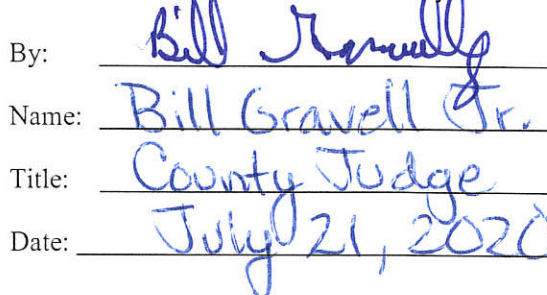 By: Bill Gravell
Name: Bill Gravell Jr.
Title: County Judge
Date: July 21, 2020